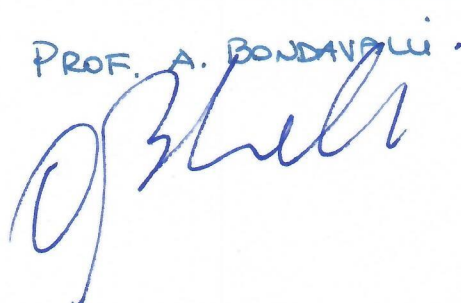 PROF. A. BONDAVALLI.